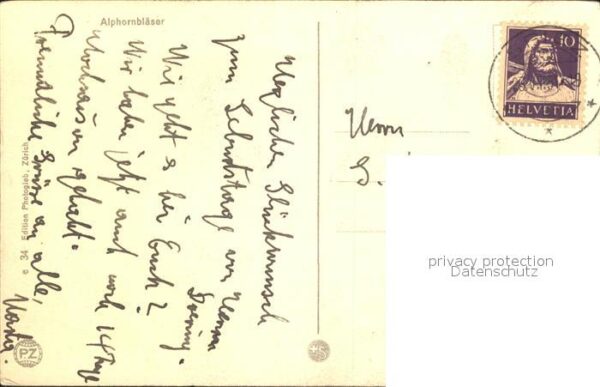 Alphornbläser
Herzlichen Glückwunsch
zum Geburtstage von Herrn
Wie geht es bei Euch?
Wir haben jetzt auch noch 14 Tage
gehabt.
Freundliche Grüsse an alle,
e 34 Edition Photoglob, Zürich
PZ
Herrn
10
HELVETIA
privacy protection
Datenschutz